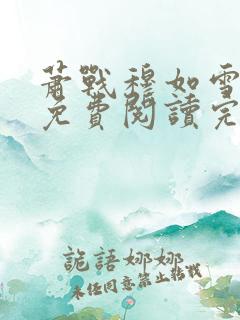 蕭戰穆如雪
免費閱讀完
詭語娜娜
未任同意禁止轉載